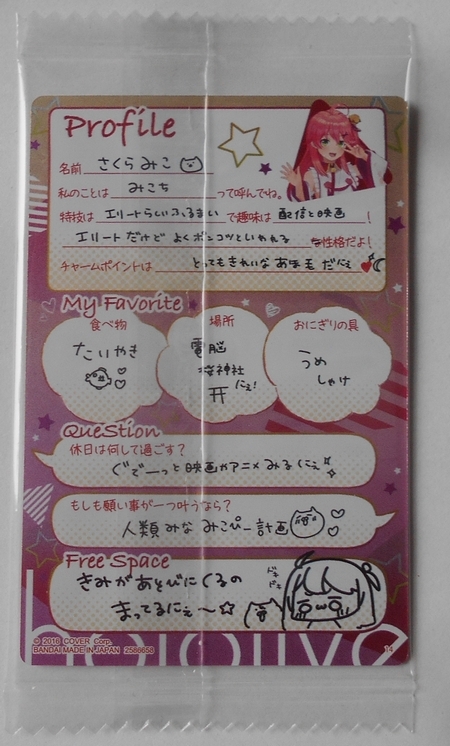 Profile
名前 さくらみこ
私のことは みこち って呼んでね。
特技は エリートらしいふるまい で趣味は 配信と映画 !
エリートだけど よくポンコツといわれる 性格だよ!
チャームポイントは とってもきれいな おめめ だにぇ
My Favorite
食べ物
たいやき
場所
電脳
桜神社
にぇ!
おにぎりの具
うめ
しゃけ
QueStion
休日は何して過ごす?
ぐでーっと映画かアニメみるにぇ
もしも願い事が一つ叶うなら?
人類みなみこぴー計画
Free Space
きみがあそびにくるの
まってるにぇ〜☆
ドキ
ドキ
© 2016 COVER Corp.
BANDAI MADE IN JAPAN 2566658
14
hololive